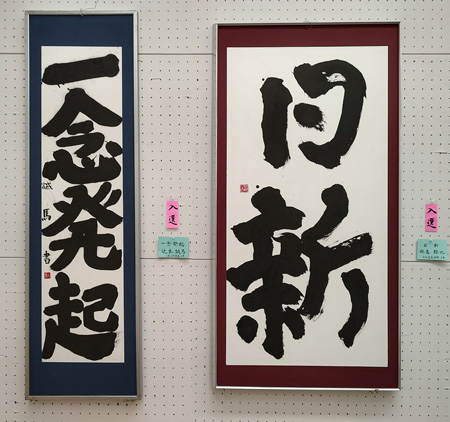 一念発起
誠馬書
入選
一念発起
日新
入選
日新